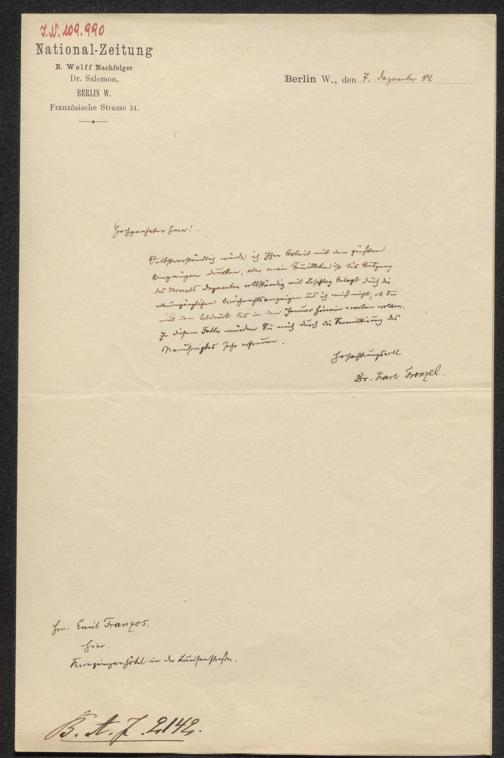 I.N. 209.990
National-Zeitung
B. Wolff Nachfolger
Dr. Salomon.
BERLIN W.
Französische Strasse 51.
Berlin W., den 7. Dezember
Hochgeehrter Herr!
Selbstverständlich würde ich Ihre Arbeit mit dem größten
Vergnügen drucken, aber mein Feuilleton ist bis Ausgang
des Monats Dezember vollständig mit Beschlag belegt durch die
Weihnachtsanzeigen und ich weiß nicht, ob Sie
mit dem Abdruck bis in den Januar hinein warten wollen.
In diesem Falle würden Sie mich durch die Zusendung des
Manuskriptes sehr erfreuen.
Hochachtungsvoll
Dr. Karl Frenzel.
Hrn. Emil Franzos.
hier.
in der Luisenstraße.
2142.